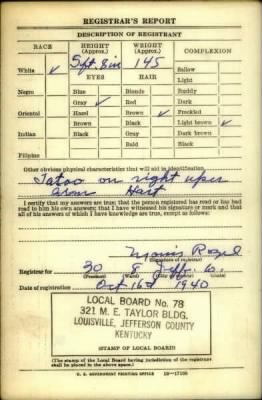 REGISTRAR'S REPORT
DESCRIPTION OF REGISTRANT
RACE HEIGHT (Approx.) WEIGHT (Approx.) COMPLEXION
White ✓ 5ft. 8in 145 Sallow
EYES HAIR Light
Negro Blue Blonde Ruddy
Gray ✓ Red Dark
Oriental Hazel Brown ✓ Freckled
Brown Black Light brown ✓
Indian Black Gray Dark brown
Bald Black
Filipino
Other obvious physical characteristics that will aid in identification
Tatoo on right uper
arm Hart
I certify that my answers are true; that the person registered has read or has had
read to him his own answers; that I have witnessed his signature or mark and that
all of his answers of which I have knowledge are true, except as follows:
Morris
(Signature of registrar)
Registrar for 30 8 Jeff. Co.
(Precinct) (Ward) (State)
Date of registration Oct 16th 1940
LOCAL BOARD No. 78
321 M. E. TAYLOR BLDG.
LOUISVILLE, JEFFERSON COUNTY
KENTUCKY
(STAMP OF LOCAL BOARD)
(The stamp of the Local Board having jurisdiction of the registrant
shall be placed in the above space.)
U. S. GOVERNMENT PRINTING OFFICE